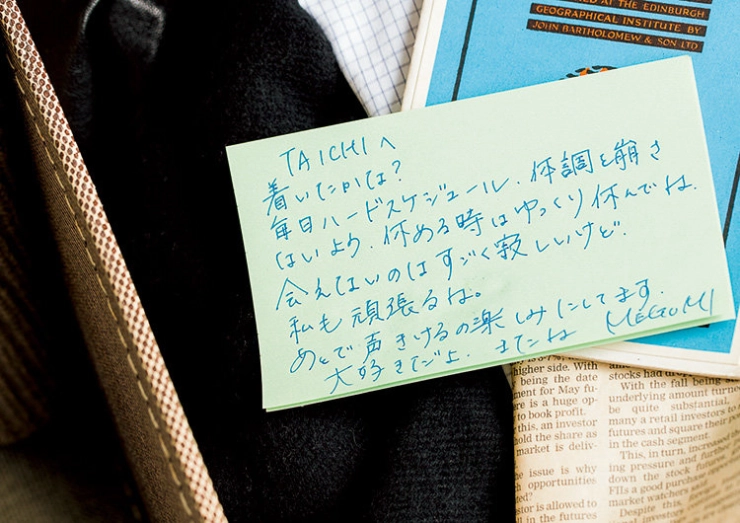 AT THE EDINBURGH
GEOGRAPHICAL INSTITUTE BY
JOHN BARTHOLOMEW & SON LTD
TAICHIへ
着いたかな?
毎日ハードスケジュール、体調を崩さ
ないよう、休める時はゆっくり休んでね、
会えないのはすごく寂しいけど、
私も頑張るね。
あとで声きけるの楽しみにしてます、
大好きだよ、またね MEGUMI
higher side. With
being the date
ment for May fu-
re is a huge op-
to book profit.
this, an investor
hold the share as
market is deliv-
e issue is why
opportunities
ted?
stor is allowed to
in the futures
stocks had
With the fall being
underlying amount turn
be quite substantial,
many a retail investors to
futures and square their po
in the cash segment.
This, in turn, increased
ing pressure and further
down the stock futu
FIIs a good purchase
market watchers
Despite this,